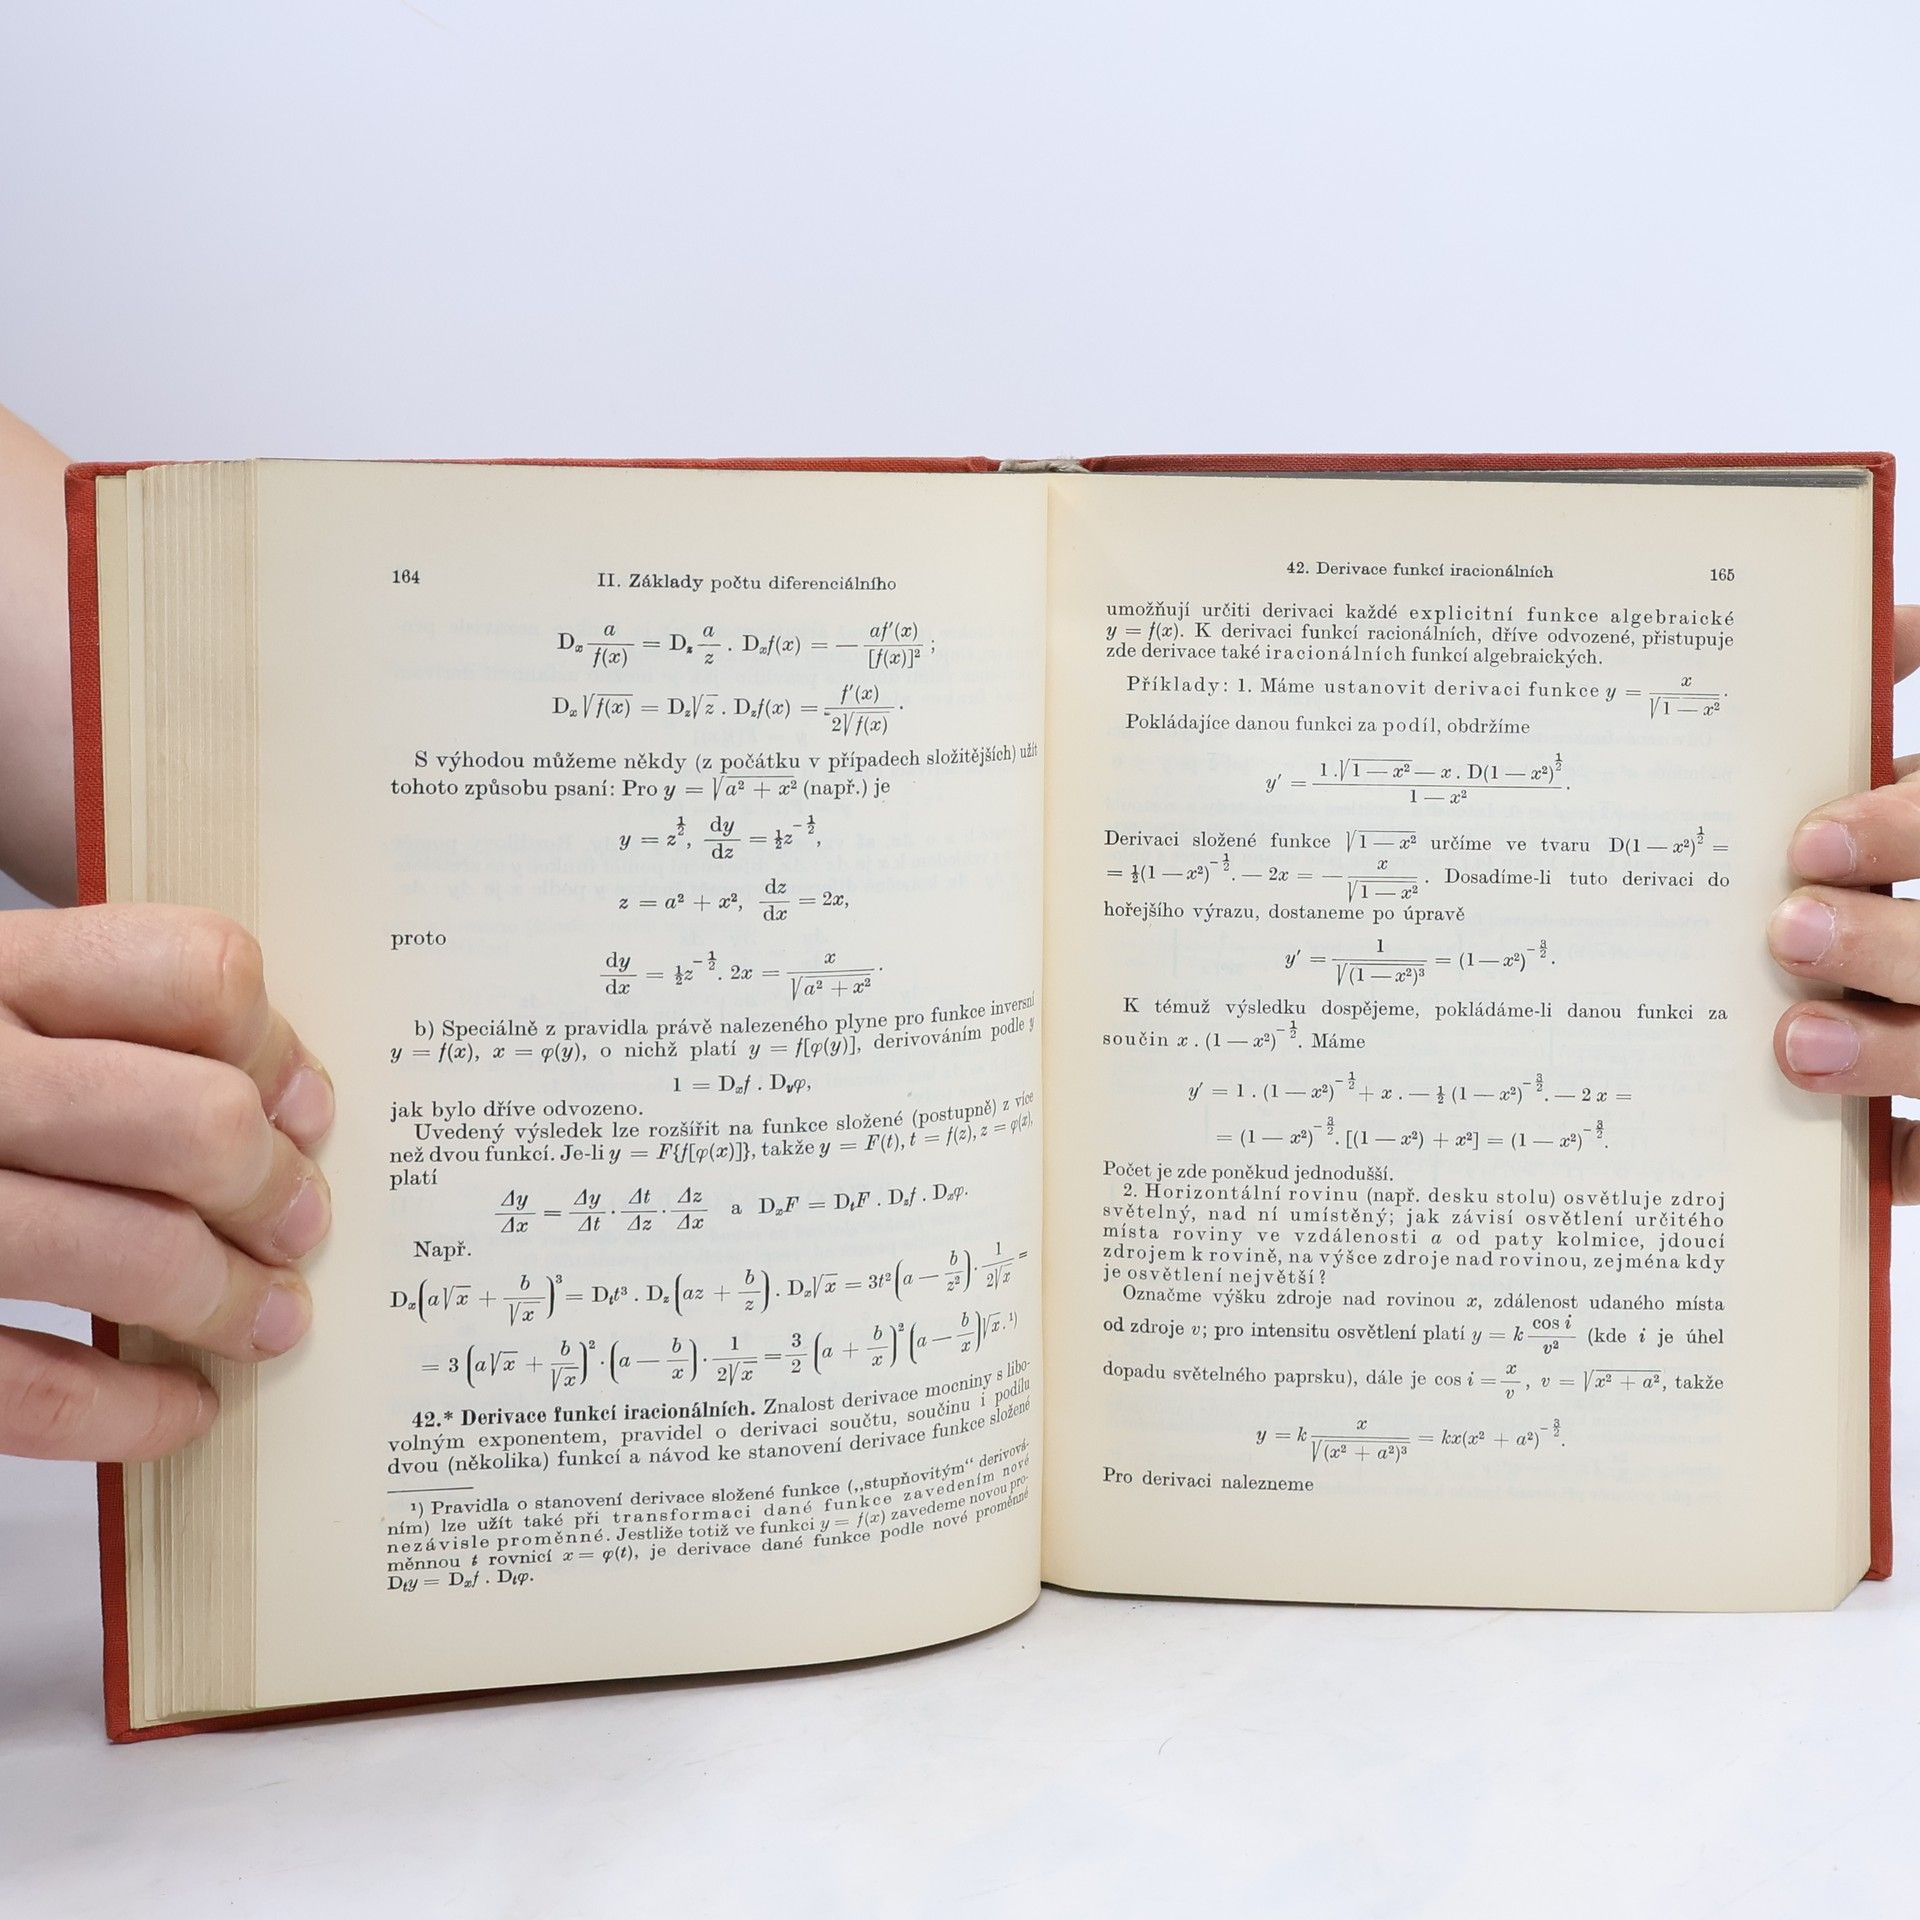 164 II. Základy počtu diferenciálního
Dₓ a/f(x) = D_z a/z . Dₓf(x) = — af′(x)/[f(x)]² ;
Dₓ √f(x) = D_z√z . D_zf(x) = f′(x)/2√f(x) .
S výhodou můžeme někdy (z počátku v případech složitějších) užít
tohoto způsobu psaní: Pro y = √a² + x² (např.) je
y = z^½, dy/dz = ½z^−½,
z = a² + x², dz/dx = 2x,
proto
dy/dx = ½z^−½ . 2x = x/√a² + x² .
b) Speciálně z pravidla právě nalezeného plyne pro funkce inversní
y = f(x), x = φ(y), o nichž platí y = f[φ(y)], derivováním podle y
1 = Dₓf . D_yφ,
jak bylo dříve odvozeno.
Uvedený výsledek lze rozšířit na funkce složené (postupně) z více
než dvou funkcí. Je-li y = F{f[φ(x)]}, takže y = F(t), t = f(z), z = φ(x),
platí
Δy/Δx = Δy/Δt . Δt/Δz . Δz/Δx a DₓF = DₜF . D_zf . Dₓφ.
Např.
Dₓ(a√x + b/√x)³ = Dₜt³ . D_z(az + b/z) . Dₓ√x = 3t²(a — b/z²) . 1/2√x =
= 3 (a√x + b/√x)² . (a — b/x) . 1/2√x = 3/2 (a + b/x)² (a — b/x)√x.¹)
42.* Derivace funkcí iracionálních. Znalost derivace mocniny s libo-
volným exponentem, pravidel o derivaci součtu, součinu i podílu
dvou (několika) funkcí a návod ke stanovení derivace funkce složené
¹) Pravidla o stanovení derivace složené funkce („stupňovitým“ derivová-
ním) lze užít také při transformaci dané funkce zavedením nové
nezávisle proměnné. Jestliže totiž ve funkci y = f(x) zavedeme novou pro-
měnnou t rovnicí x = φ(t), je derivace dané funkce podle nové proměnné
Dₜy = Dₓf . Dₜφ.
42. Derivace funkcí iracionálních 165
umožňují určiti derivaci každé explicitní funkce algebraické
y = f(x). K derivaci funkcí racionálních, dříve odvozené, přistupuje
zde derivace také iracionálních funkcí algebraických.
Příklady: 1. Máme ustanovit derivaci funkce y = x/√1 — x² .
Pokládajíce danou funkci za podíl, obdržíme
y′ = 1 . √1 — x² — x . D(1 — x²)^½ / 1 — x² .
Derivaci složené funkce √1 — x² určíme ve tvaru D(1 — x²)^½ =
= ½(1 — x²)^−½ . — 2x = — x/√1 — x² . Dosadíme-li tuto derivaci do
hořejšího výrazu, dostaneme po úpravě
y′ = 1/√(1 — x²)³ = (1 — x²)^−3/2 .
K témuž výsledku dospějeme, pokládáme-li danou funkci za
součin x . (1 — x²)^−½. Máme
y′ = 1 . (1 — x²)^−½ + x . — ½ (1 — x²)^−3/2 . — 2 x =
= (1 — x²)^−3/2 . [(1 — x²) + x²] = (1 — x²)^−3/2 .
Počet je zde poněkud jednodušší.
2. Horizontální rovinu (např. desku stolu) osvětluje zdroj
světelný, nad ní umístěný; jak závisí osvětlení určitého
místa roviny ve vzdálenosti a od paty kolmice, jdoucí
zdrojem k rovině, na výšce zdroje nad rovinou, zejména kdy
je osvětlení největší?
Označme výšku zdroje nad rovinou x, zdálenost udaného místa
od zdroje v; pro intensitu osvětlení platí y = k cos i/v² (kde i je úhel
dopadu světelného paprsku), dále je cos i = x/v , v = √x² + a², takže
y = k x/√(x² + a²)³ = kx(x² + a²)^−3/2 .
Pro derivaci nalezneme